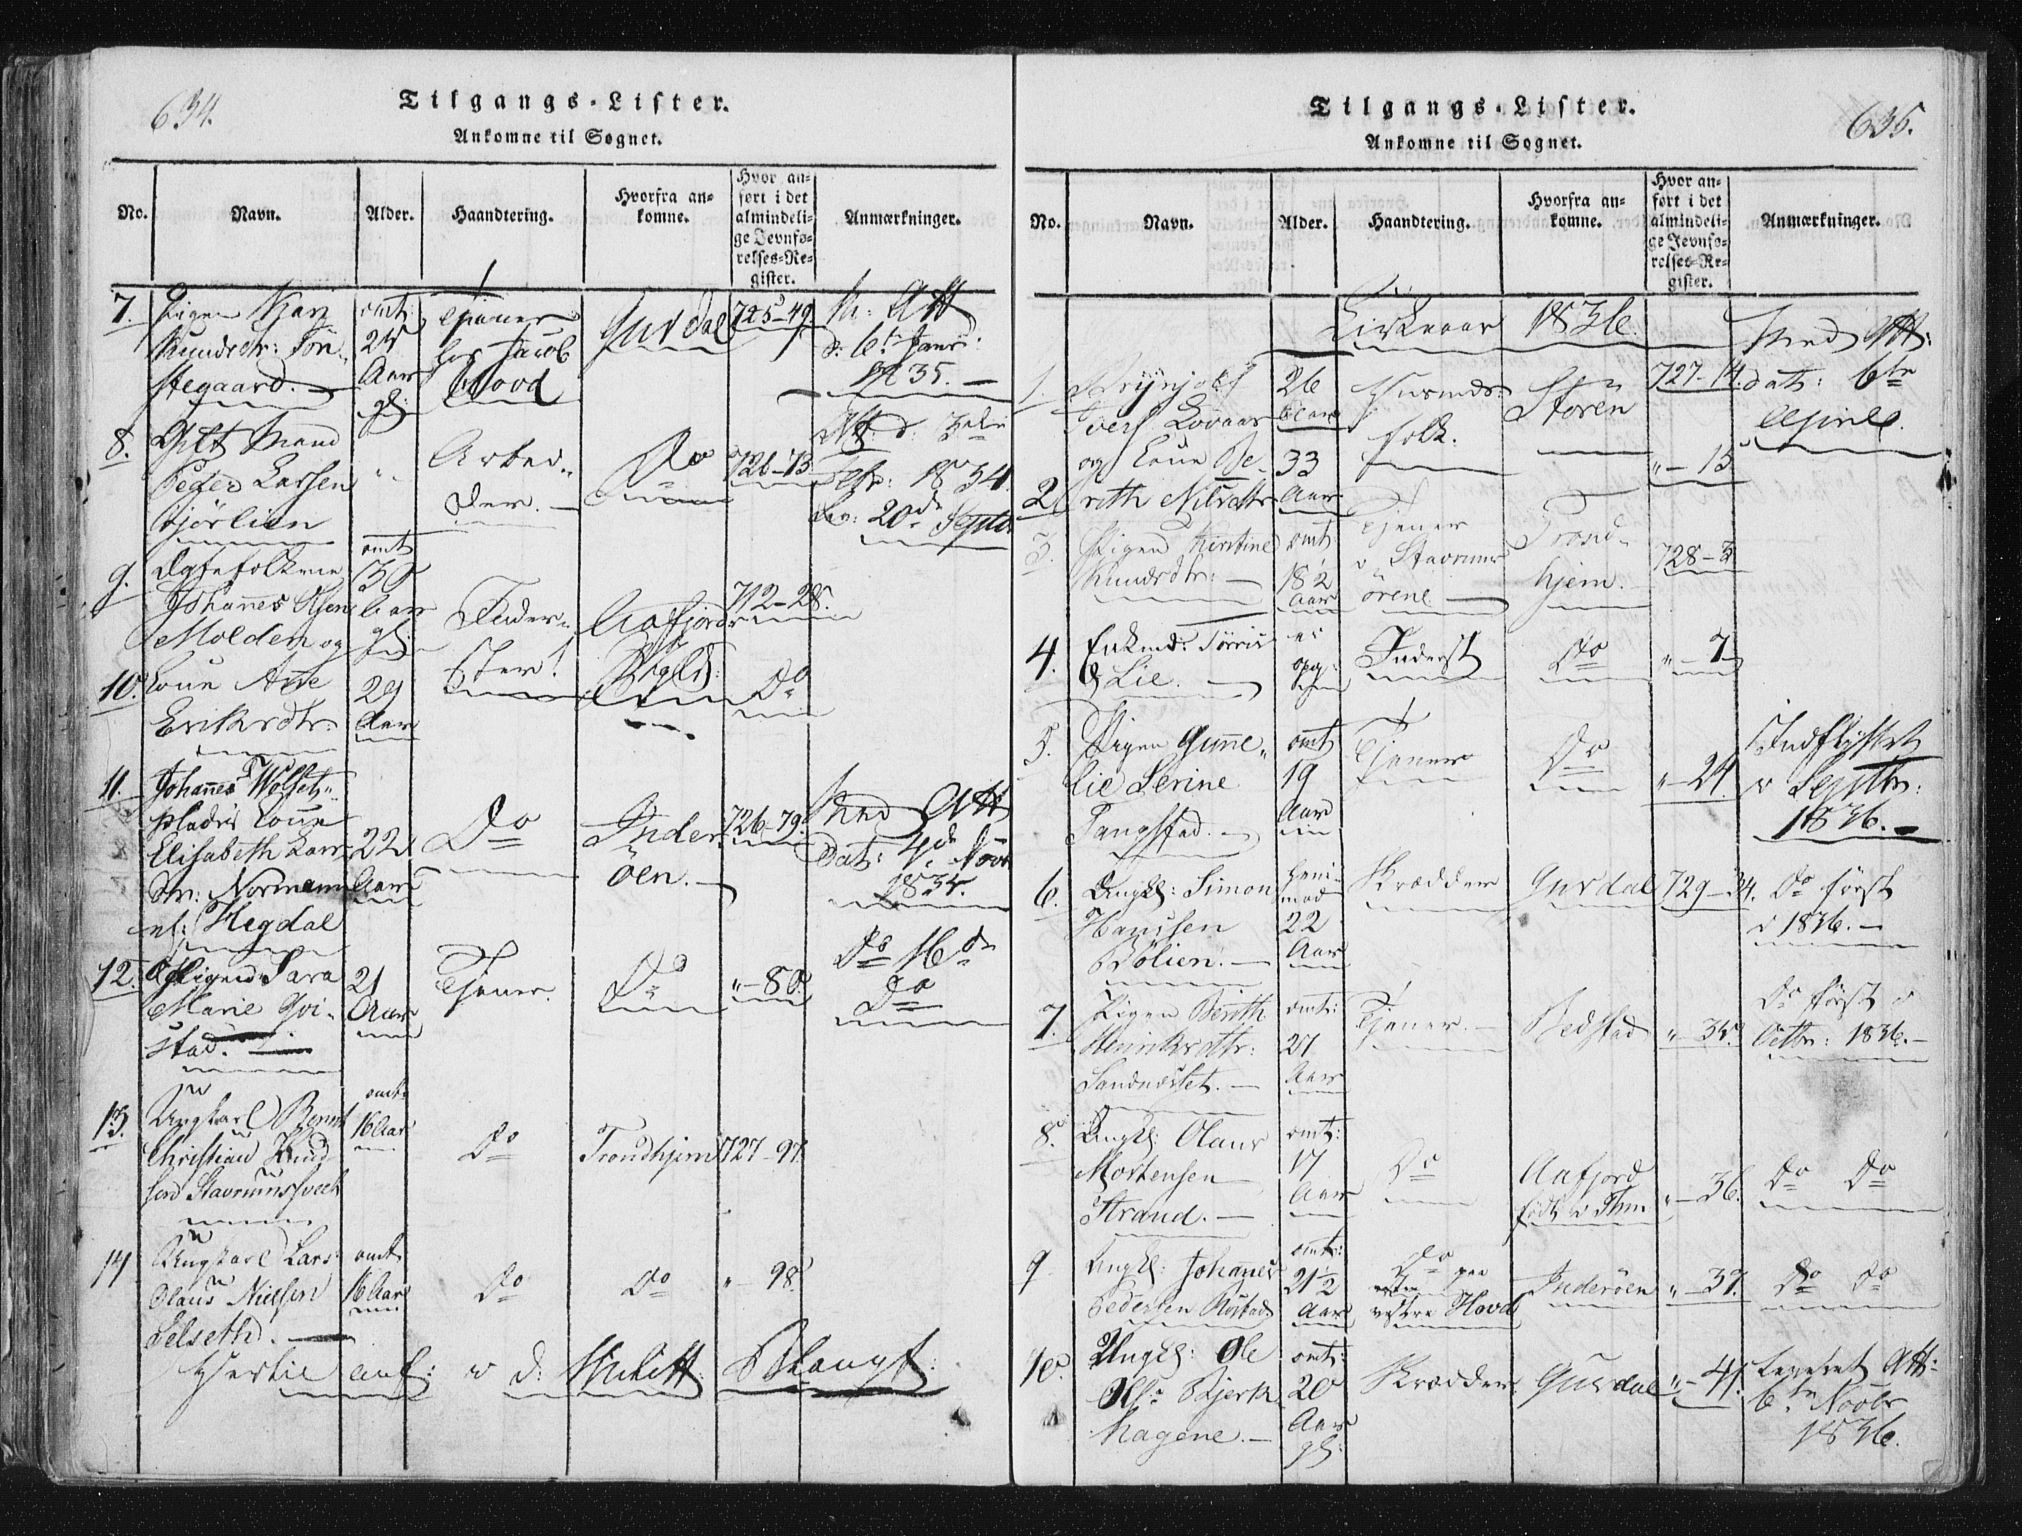 634.
Tilgangs-Lister.
Ankomne til Sognet.
No.
Navn.
Alder.
Haandtering.
Hvorfra an-
komne.
Hvor an-
ført i det
almindeli-
ge Jevnfø-
relses-Re-
gister.
Anmærkninger.
7.
Pigen
Knudsdtr:
stegaard.
omt:
25
Aar
gl:
tjener
hos Jacob
Hovd
Gurdal
725-49
Att
d. 6t Janr
1835.
8.
Gift Mand
Peder Larsen
Bjørlien
Arbei-
der.
Do
726-73
Att: d. 3die
Febr: 1834
20de Septbr
9.
Egtefolkene
Johannes Olsen
Molden og
omt
30
Aar
gl:
Inder-
ster!
Aafjord
Bigld:
712-28.
10.
Kone Ane
Eriksdtr:
29
Aar
Do
11.
Johannes Wolset-
pladss Kone
Elisabeth Lars
dtr: Normann
ell: Hegdal
22
Aar
Do
Inder-
öen.
726-79.
Med Att
dat: 4de Novbr
1835.
12.
Pigen Sara
Marie Qvi-
stad.
21
Aar
Tjener.
Do
"-80.
Do 16de
Do
13.
Ungkarl Bernt
Christian Knud
sen Stavrumsveet
omt:
16 Aar
Do
Trondhjem
727-97.
14
Ungkarl Lars
Olaus Nielsen
Selseth.
omt
16 Aar
Do
Do
"-98.
Hertil anf: v d: Militt: Mangf:
635.
Tilgangs-Lister.
Ankomne til Sognet.
No.
Navn.
Alder.
Haandtering.
Hvorfra an-
komne.
Hvor an-
ført i det
almindeli-
ge Jevnfø-
relses-Re-
gister.
Anmærkninger.
Kirkeaar 1836.
1.
Brynjolf
Ivers Lovaas
26
Aar
Huusmds:
folk.
Støren
727-14.
Med Att:
dat: 6te
April
2.
og Kone Be-
rith Nilsdtr
33
Aar
"-15
3.
Pigen Kirstine
Knudsdtr:
omt
18½
Aar
Tjener
v Stavrums
örene
Trond-
hjem.
728-3
4.
Enkmd: Törris
Lie.
ei
opg:
Inderst
Do
"-7
5.
Pigen Gunne-
lie Serine
Tangstad.
omt
19
Aar
Tjener
Do
"-24.
Indflyttet
v Septbr:
1836.
6.
Ungk: Simon
Hansen
Bölien.
22
Aar
Skrædder
Gurdal
729-34.
Do först
v 1836.
7.
Pigen Berith
Henriksdtr:
Sandnæsset.
omt:
27
Aar
Tjener.
Bedstad
"-35.
Do först v
Octbr: 1836.
8.
Ungk: Olaus
Mortensen
Strand.
omt:
17
Aar
Do
Aafjord
födt v Thm
"-36.
Do Do
9
Ungk: Johanes
Pedersen
omt:
21½
Aar
Do paa
vestre Hovd
Inderöen
"-37.
Do Do
10.
Ungk: Ole
Ols: Bjerk
hagene.
omt:
20
Aar
gl:
Skrædder
Gurdal
"-41.
Leveret Att:
6te Novbr
1836.